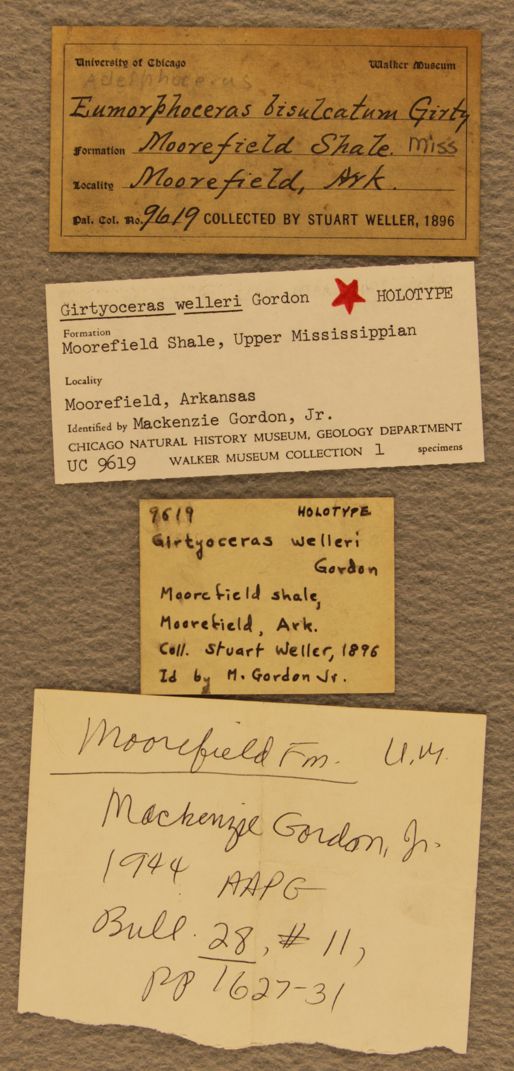 University of Chicago Walker Museum
Adelphoceras
Eumorphoceras bisulcatum Girty
Formation Moorefield Shale. Miss
Locality Moorefield, Ark.
Pal. Col. No. 9619 COLLECTED BY STUART WELLER, 1896
Girtyoceras welleri Gordon HOLOTYPE
Formation
Moorefield Shale, Upper Mississippian
Locality
Moorefield, Arkansas
Identified by Mackenzie Gordon, Jr.
CHICAGO NATURAL HISTORY MUSEUM, GEOLOGY DEPARTMENT
UC 9619 WALKER MUSEUM COLLECTION 1 specimens
9619 HOLOTYPE
Girtyoceras welleri
Gordon
Moorefield shale,
Moorefield, Ark.
Coll. Stuart Weller, 1896
Id by M. Gordon Jr.
Moorefield Fm. U.M.
Mackenzie Gordon, Jr.
1944 AAPG
Bull. 28, # 11,
pp 1627-31